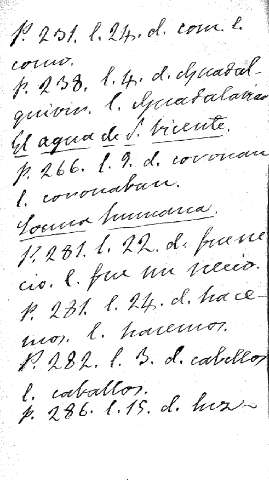 P. 231. l. 24. d. com. l.
como.
P. 238. l. 4. d. Guadal-
quivir. l. Guadalaviar
El agua de S. Vicente.
P. 266. l. 9. d. coronan
l. coronaban.
Locura humana.
P. 281. l. 22. d. fue ne
cio. l. fue un necio.
P. 281. l. 24. d. hace-
mos. l. haremos.
P. 282. l. 3. d. cabellos
l. caballos.
P. 286. l. 15. d. luz